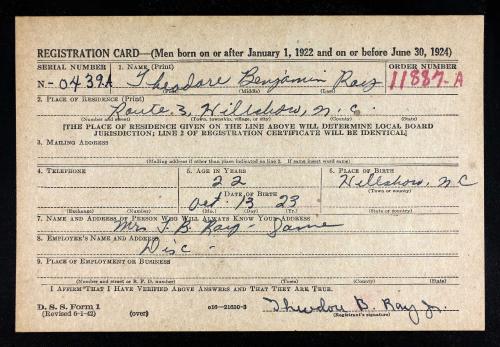 REGISTRATION CARD—(Men born on or after January 1, 1922 and on or before June 30, 1924)
SERIAL NUMBER 1. NAME (Print) ORDER NUMBER
N- 0439A Theodore Benjamin Ray 11887-A
(First) (Middle) (Last)
2. PLACE OF RESIDENCE (Print)
Route 3, Hillsboro, N.C.
(Number and street) (Town, township, village, or city) (County) (State)
[THE PLACE OF RESIDENCE GIVEN ON THE LINE ABOVE WILL DETERMINE LOCAL BOARD
JURISDICTION; LINE 2 OF REGISTRATION CERTIFICATE WILL BE IDENTICAL]
3. MAILING ADDRESS
(Mailing address if other than place indicated on line 2. If same insert word same)
4. TELEPHONE 5. AGE IN YEARS 6. PLACE OF BIRTH
22 Hillsboro, N.C
DATE OF BIRTH (Town or county)
Oct 13 23
(Exchange) (Number) (Mo.) (Day) (Yr.) (State or country)
7. NAME AND ADDRESS OF PERSON WHO WILL ALWAYS KNOW YOUR ADDRESS
Mrs T. B. Ray - Same
8. EMPLOYER'S NAME AND ADDRESS
Disc -
9. PLACE OF EMPLOYMENT OR BUSINESS
(Number and street or R. F. D. number) (Town) (County) (State)
I AFFIRM THAT I HAVE VERIFIED ABOVE ANSWERS AND THAT THEY ARE TRUE.
D. S. S. Form 1
(Revised 6-1-42) (over) c16—21630-3 Theodore B. Ray Jr.
(Registrant's signature)